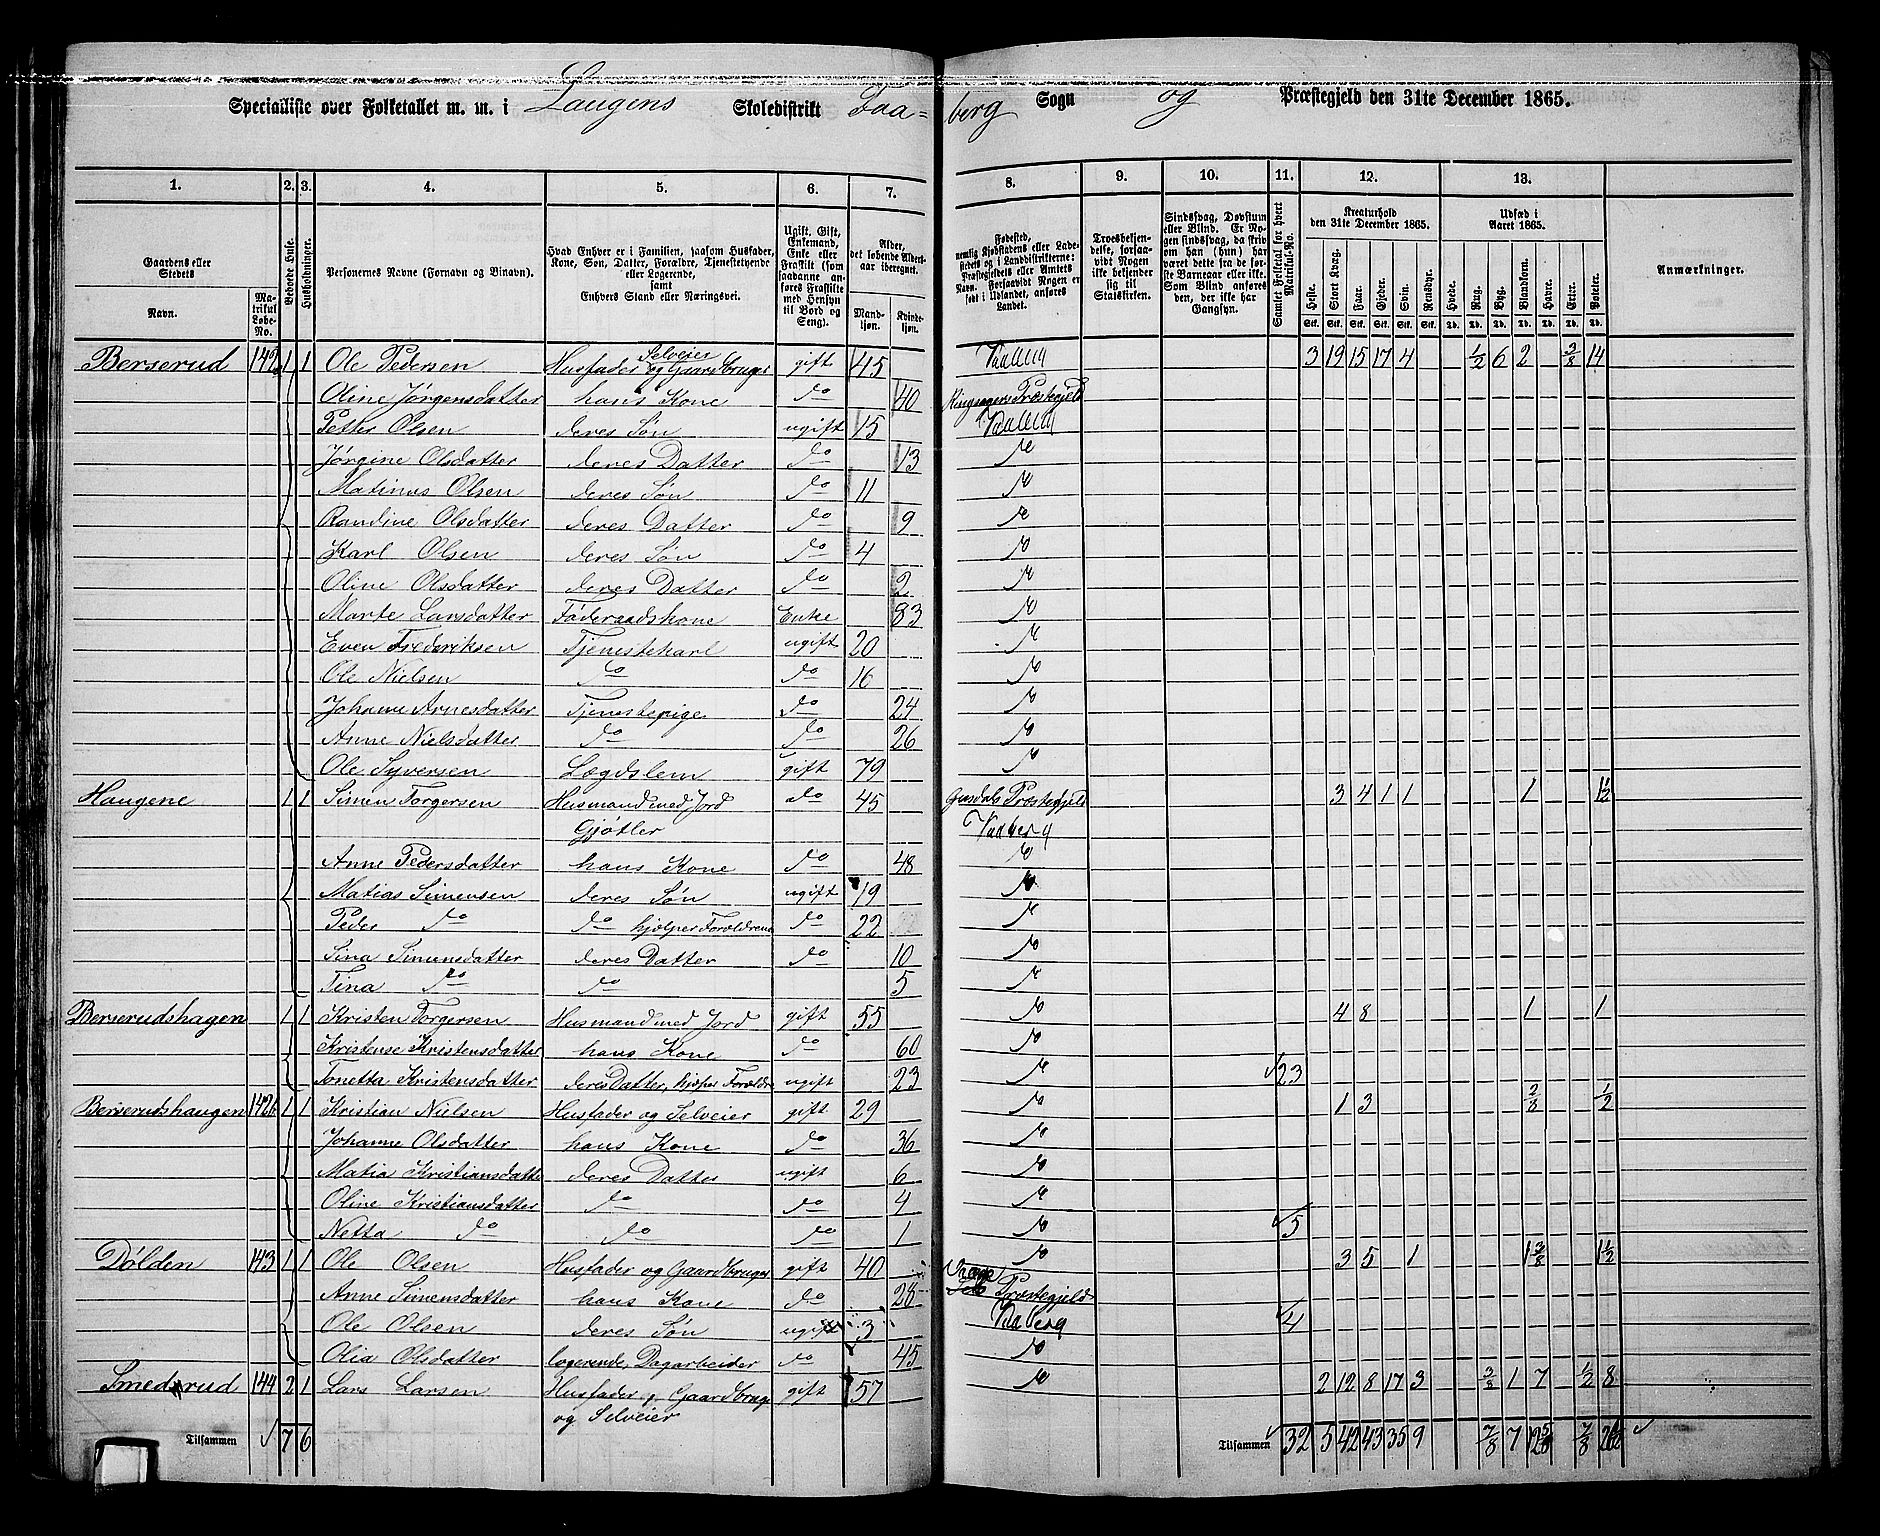 Specialliste over Folketallet m. m. i Laugens Skoledistrikt Faaberg Sogn og Præstegjeld den 31te December 1865.
1. 2. 3. 4. 5. 6. 7. 8. 9. 10. 11. 12. 13.
Gaardens eller Stedets
Navn.
Matrikul Løbe-No.
Bebode Huse.
Husholdninger.
Personernes Navne (Fornavn og Binavn).
Hvad Enhver er i Familien, saasom Husfader, Kone, Søn, Datter, Forældre, Tjenestetyende eller Logerende, samt Enhvers Stand eller Næringsvei.
Ugift, Gift, Enkemand, Enke eller Fraskilt (som saadanne anføres Fraskilte med Hensyn til Bord og Seng).
Alder, det løbende Aldersaar iberegnet.
Mandkjøn. Kvindekjøn.
Fødested, nemlig Kjøbstadens eller Ladestedets og i Landdistrikterne: Præstegjeldets eller Amtets Navn. Forsaavidt Nogen er født i Udlandet, anføres Landet.
Troesbekjendelse, forsaavidt Nogen ikke bekjender sig til Statskirken.
Sindssvag, Døvstum eller Blind. Er Nogen sindssvag, da skriv om han (hun) har været dette fra de første Barneaar eller ikke. Som Blind anføres den, der ikke har Gangsyn.
Samlet Folketal for hvert Matrikul-No.
Kreaturhold den 31te December 1865.
Heste. Stort Kvæg. Faar. Gjeder. Svin. Rensdyr.
Udsæd i Aaret 1865.
Hvede. Rug. Byg. Blandkorn. Havre. Erter. Poteter.
Anmærkninger.
Berserud 142 1 1 Ole Pedersen Husfader Selveier og Gaardbruger gift 45 3 19 15 17 4 1/2 6 2 3/8 14
Oline Jørgensdatter hans Kone do 40 Ringsagers Præstegjeld
Olsen deres Søn ugift 15
Jørgine Olsdatter deres Datter do 13
Matinus Olsen deres Søn do 11
Randine Olsdatter deres Datter do 9
Karl Olsen deres Søn do 4
Oline Olsdatter deres Datter do 2
Marte Larsdatter Føderaadskone Enke 83
Even Frederiksen Tjenestekarl ugift 20
Ole Nielsen do do 16
Johanne Arnesdatter Tjenestepige do 24
Anne Nielsdatter do do 26
Ole Syversen Lægdslem gift 79
Haugene 1 1 Simen Torgersen Husmand med Jord do 45 Gusdals Præstegjeld 3 4 1 1 1 1 1/2
Gjøtler Faaberg
Anne Pedersdatter hans Kone do 48
Matias Simensen deres Søn ugift 19
Peder do do hjælper Forældrene do 22
Sina Simensdatter deres Datter do 10
Tina do do 5
Berserudshagen 1 1 Kristen Torgersen Husmand med Jord gift 55 4 8 1 1
Kristense Kristensdatter hans Kone do 60
Tonetta Kristensdatter deres Datter, hjælper Forældre ugift 23 23
Berserudshaugen 142b 1 1 Kristian Nielsen Husfader og Selveier gift 29 1 3 2/8 1/2
Johanne Olsdatter hans Kone do 36
Matia Kristiansdatter deres Datter ugift 6
Oline Kristiansdatter do do 4
Netta do do do 1 5
Dølden 143 1 1 Ole Olsen Husfader og Gaardbruger gift 40 3 5 1 1 3/8 1 1/2
Anne Simensdatter hans Kone do 28 Præstegjeld
Ole Olsen deres Søn ugift 3 Faaberg 4
Olia Olsdatter logerende, Dagarbeider do 45
Smedsrud 144 2 1 Lars Larsen Husfader, Gaardbruger gift 57 2 12 8 17 3 3/8 1 7 1/2 8
og Selveier
Tilsammen 7 6 Tilsammen 32 5 42 43 35 9 7/8 7 12 5/8 7/8